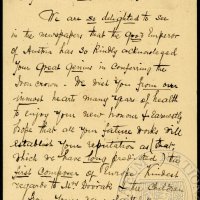 We are so delighted to see
in the newspapers that the good Emperor
of Austria has so kindly acknowledged
your great genius in conferring the
Iron crown. We wish you from our
inmost hearts many years of health
to enjoy your new honour & earnestly
hope that all your future works will
establish your reputation as that,
which we have long predicted, the
first Composer of Europe, kindest
regards to Mrs Dvorak & the Children